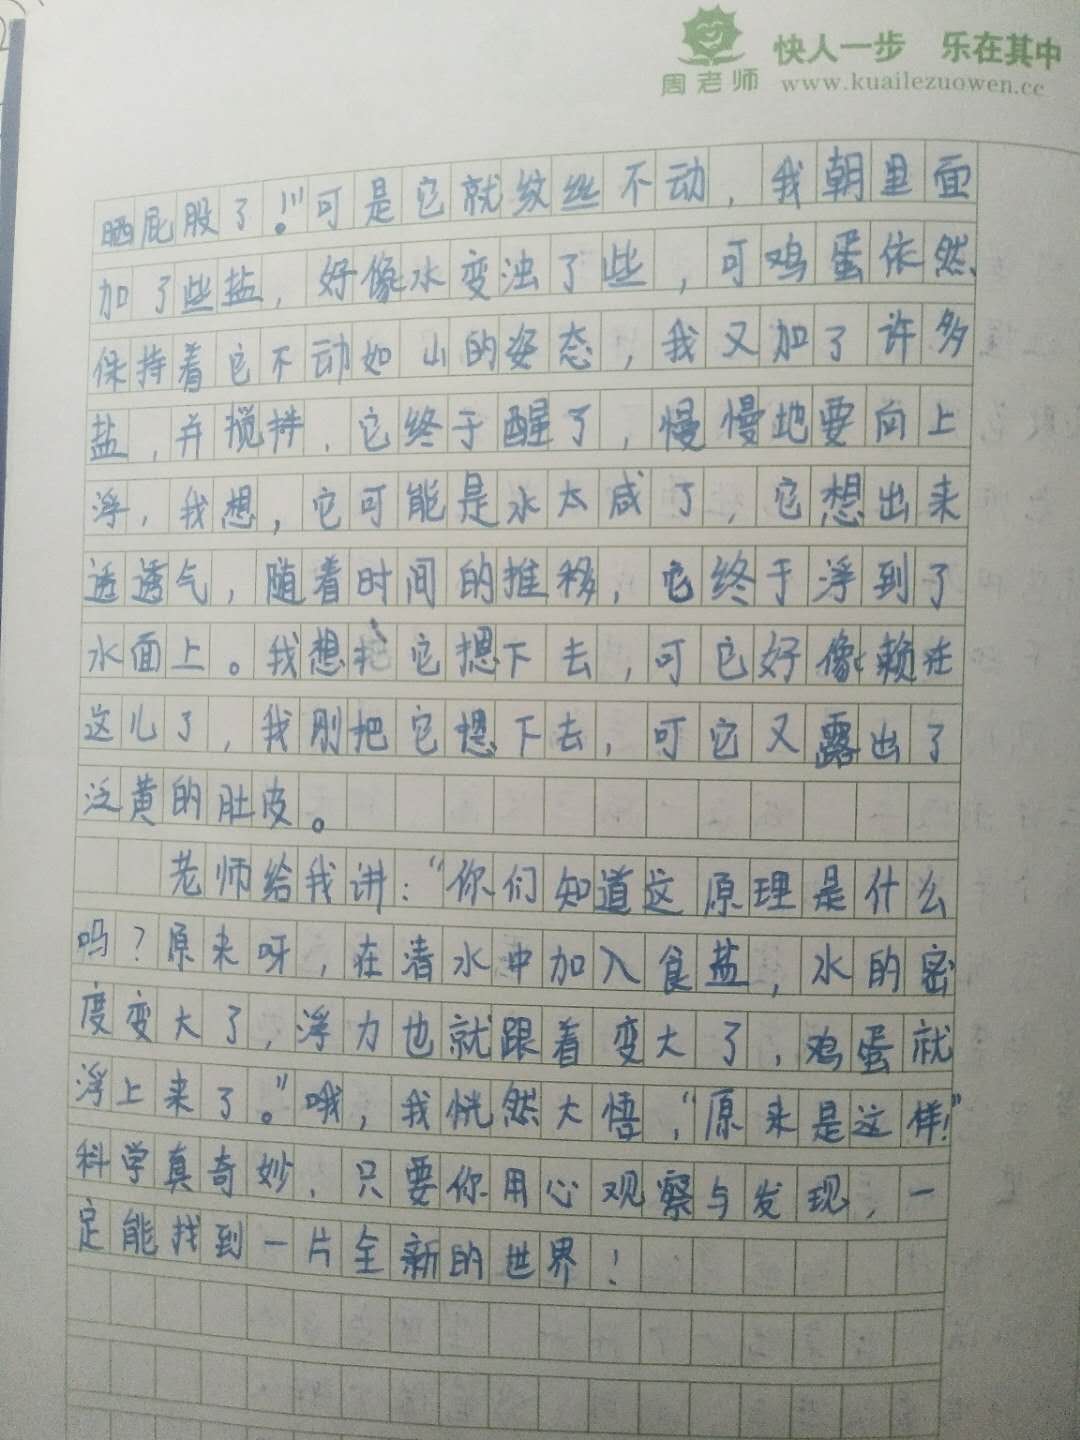 周老师
快人一步 乐在其中
www.kuailezuowen.cc
晒屁股了!"可是它就纹丝不动，我朝里面
加了些盐，好像水变浊了些，可鸡蛋依然
保持着它不动如山的姿态，我又加了许多
盐，并搅拌，它终于醒了，慢慢地要向上
浮，我想，它可能是水太咸了，它想出来
透透气，随着时间的推移，它终于浮到了
水面上。我想把它摁下去，可它好像赖在
这儿了，我刚把它摁下去，可它又露出了
泛黄的肚皮。
老师给我讲："你们知道这原理是什么
吗？原来呀，在清水中加入食盐，水的密
度变大了，浮力也就跟着变大了，鸡蛋就
浮上来了。"哦，我恍然大悟，"原来是这样！"
科学真奇妙，只要你用心观察与发现，一
定能找到一片全新的世界！